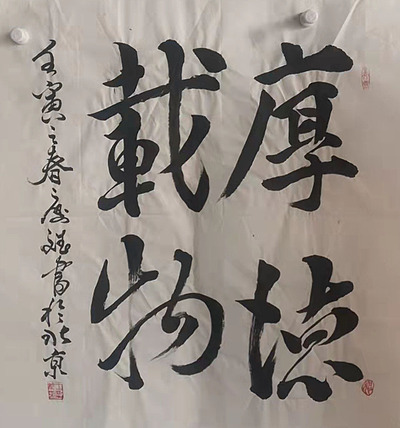 厚德
載物
壬寅之春之月䘵書於北京